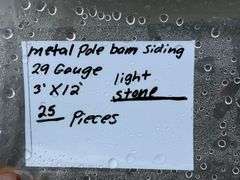 metal Pole barn siding
29 Gauge
light
3' X 12'
stone
25 Pieces